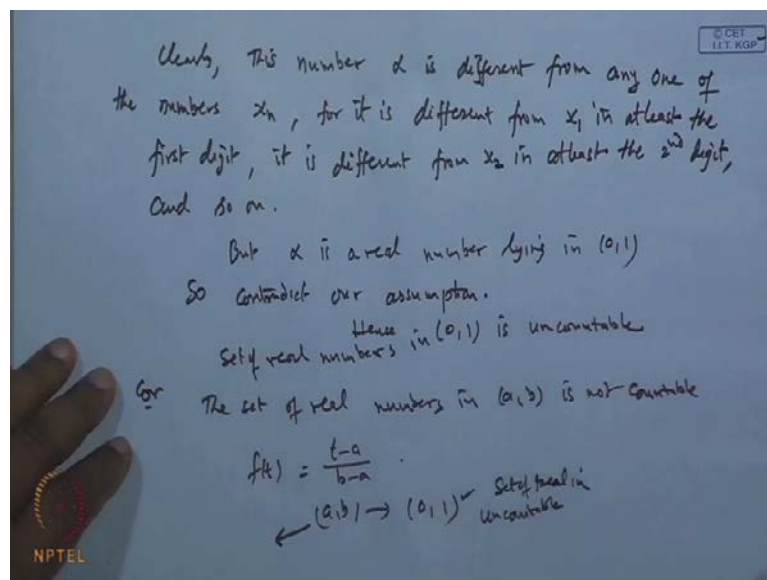 © CET
I.I.T. KGP
Clearly, This number α is different from any one of
the numbers xₙ, for it is different from x₁ in atleast the
first digit, it is different from x₂ in atleast the 2nd digit,
and so on.
But α is a real number lying in (0,1)
So contradict our assumption.
Hence
Set of real numbers in (0,1) is uncountable
Cor
The set of real numbers in (a,b) is not countable
f(t) = t-a / b-a .
(a,b) → (0,1) Set of real in
← uncountable
NPTEL